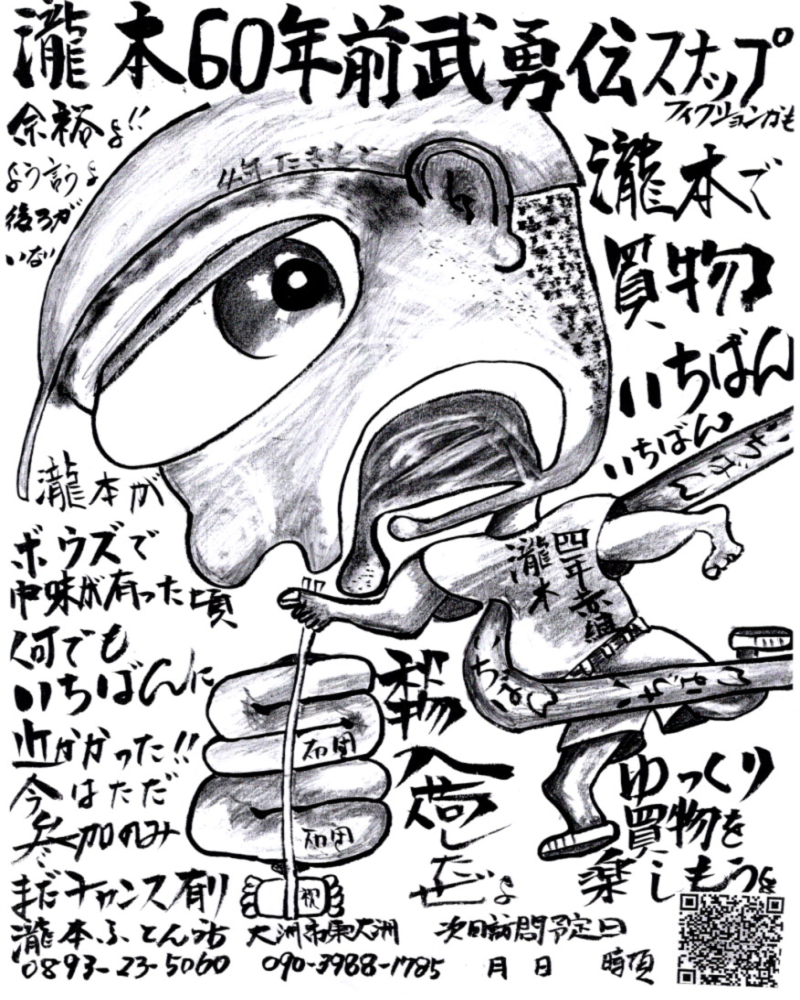 瀧本60年前武勇伝スナップ
フィクションかも
余裕よ!!
よう言うよ
後ろが
いない
4年たきもと
瀧本で
買物
いちばん
いちばん
いちばん
瀧本が
ボウズで
中味が有った頃
何でも
いちばんに
近かった!!
今はただ
参加のみ
で
まだチャンス有り
四年赤組
瀧本
いちばん
いちばん
布団
布団
祝
秋物
入荷し
だぜよ
ゆっくり
買物を
楽しもうよ
瀧本ふとん店 大洲市東大洲 次回訪問予定日
0893-23-5060 090-3988-1785 月 日 時頃